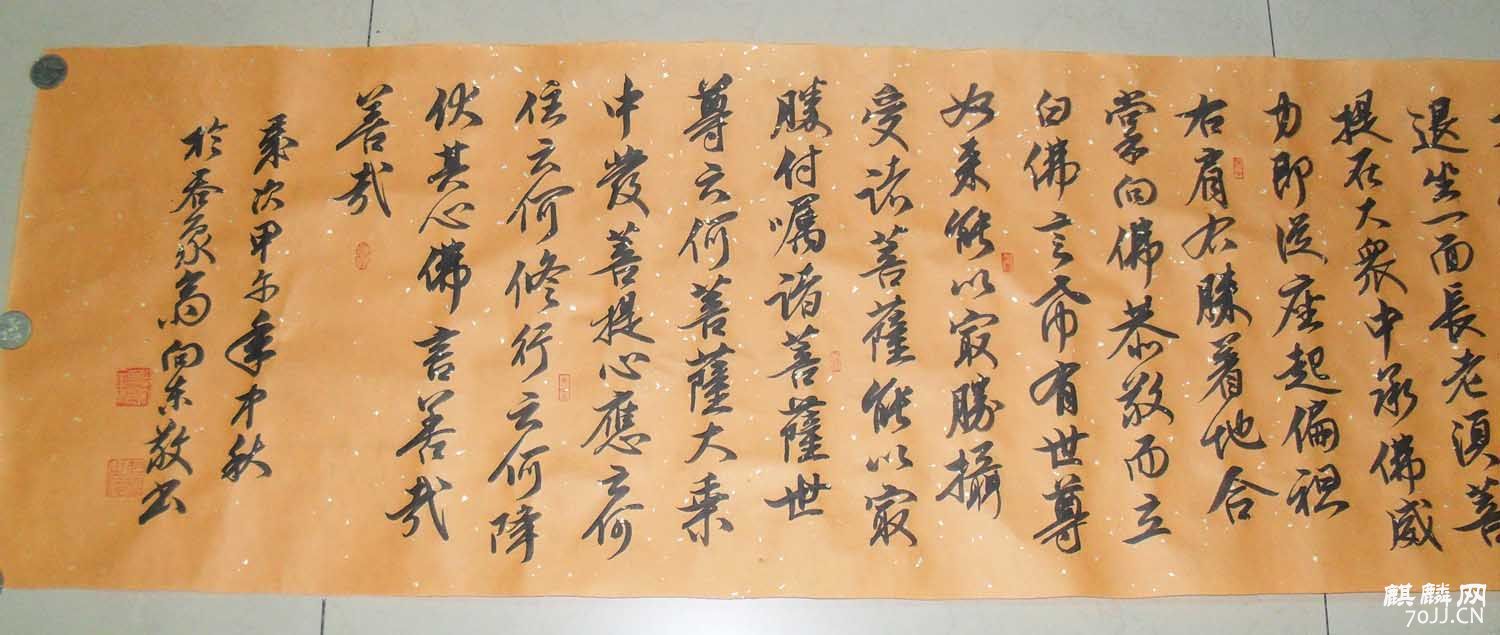 退坐一面長老須菩
提在大衆中承佛威
力即從座起偏袒
右肩右膝著地合
掌向佛恭敬而立
白佛言希有世尊
如来能以最勝攝
受諸菩薩能以最
勝付囑諸菩薩世
尊云何菩薩大乗
中發菩提心應云何
住云何修行云何降
伏其心佛言善哉
善哉
歲次甲午年中秋
於 向东敬书
麒麟网
70JJ.CN